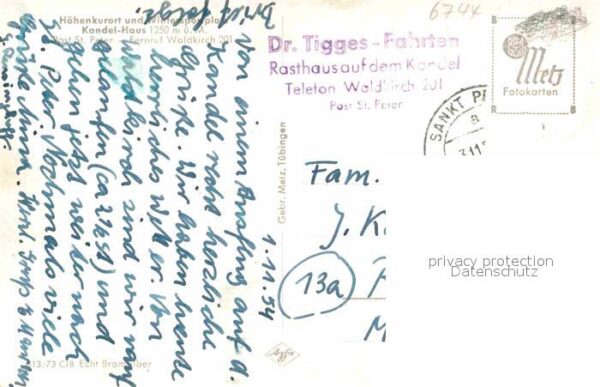 Höhenkurort und Wintersportplatz
Kandel-Haus 1250 m ü. M.
Post St. Peter - Fernruf Waldkirch 201
Dr. Tigges-Fahrten
Rasthaus auf dem Kandel
Telefon Waldkirch 201
Post St. Peter
6744
Metz
Fotokarten
SANKT P
1.11.54
Von einem Ausflug auf d.
Kandel recht herzliche
Grüße. Wir haben heute
herrliches Wetter. Von
Waldkirch sind wir rauf
gelaufen
und
gehen jetzt weiter nach
St. Peter. Nochmals viele
Grüße
Fam.
J. K
13a
M
Gebr. Metz, Tübingen
Agfa
13/73 CJB Echt Bromsilber
privacy protection
Datenschutz